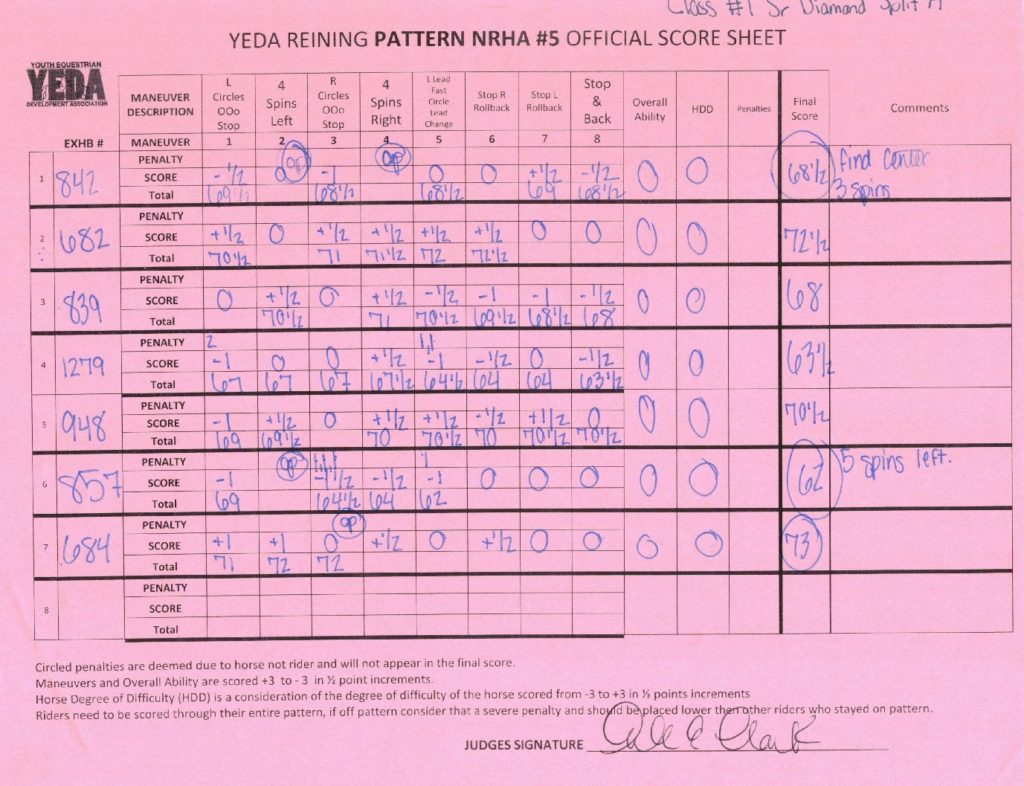 Class #1 Sr Diamond Split A
YEDA REINING PATTERN NRHA #5 OFFICIAL SCORE SHEET
YOUTH EQUESTRIAN
YEDA
DEVELOPMENT ASSOCIATION
EXHB # MANEUVER DESCRIPTION L Circles OOo Stop 4 Spins Left R Circles OOo Stop 4 Spins Right L Lead Fast Circle Lead Change Stop R Rollback Stop L Rollback Stop & Back Overall Ability HDD Penalties Final Score Comments
MANEUVER 1 2 3 4 5 6 7 8
1 842 68 1/2 find center
3 spins
PENALTY OP OP
SCORE -1/2 0 -1 0 0 +1/2 -1/2 0 0
Total 69 1/2 68 1/2 68 1/2 69 68 1/2
2 682 72 1/2
PENALTY
SCORE +1/2 0 +1/2 +1/2 +1/2 +1/2 0 0 0 0
Total 70 1/2 71 71 1/2 72 72 1/2
3 839 68
PENALTY
SCORE 0 +1/2 0 +1/2 -1/2 -1 -1 -1/2 0 0
Total 70 1/2 71 70 1/2 69 1/2 68 1/2 68
4 1279 63 1/2
PENALTY 2 1,1
SCORE -1 0 0 +1/2 -1 -1/2 0 -1/2 0 0
Total 67 67 67 67 1/2 64 1/2 64 64 63 1/2
5 948 70 1/2
PENALTY
SCORE -1 +1/2 0 +1/2 +1/2 -1/2 +1/2 0 0 0
Total 69 69 1/2 70 70 1/2 70 70 1/2 70 1/2
6 857 62 5 spins left.
PENALTY OP 1,1,1 1
SCORE -1 -1 1/2 -1/2 -1 0 0 0 0 0
Total 69 64 1/2 64 62
7 684 73
PENALTY OP
SCORE +1 +1 0 +1/2 0 +1/2 0 0 0 0
Total 71 72 72
8
PENALTY
SCORE
Total
Circled penalties are deemed due to horse not rider and will not appear in the final score.
Maneuvers and Overall Ability are scored +3 to - 3 in ½ point increments.
Horse Degree of Difficulty (HDD) is a consideration of the degree of difficulty of the horse scored from -3 to +3 in ½ points increments
Riders need to be scored through their entire pattern, if off pattern consider that a severe penalty and should be placed lower then other riders who stayed on pattern.
JUDGES SIGNATURE